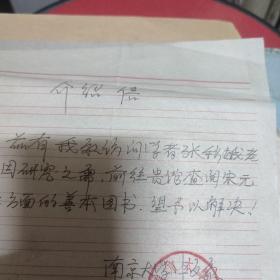 介绍信
兹有我系访问学者张秋
因研究之需，前往贵馆查阅宋元
方面的善本图书，望予以解决！
南京大学